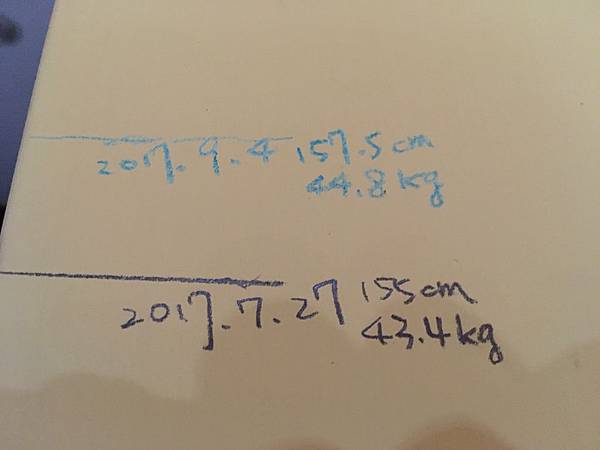 2017.9.4 157.5cm
44.8kg
2017.7.27 155cm
43.4kg